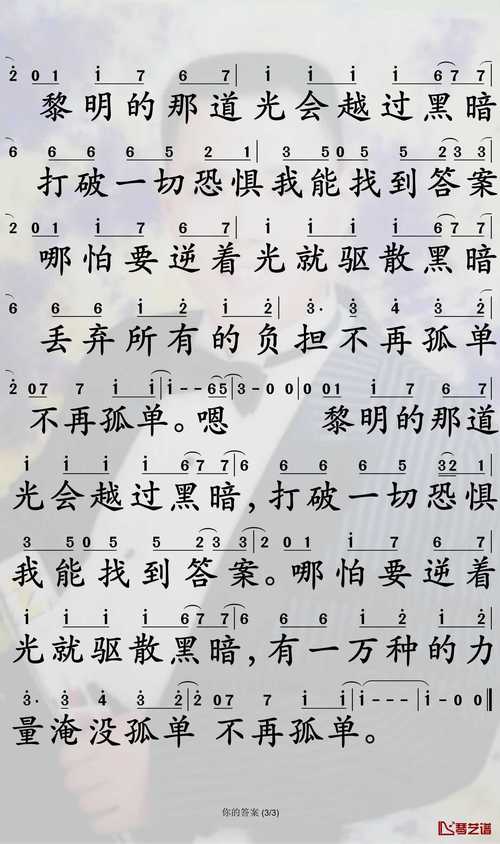 2 0 1 i 7 6 7 | i i i i 6 7 7
黎明的那道光会越过黑暗
6 6 6 6 5 2 1 | 3 5 0 5 5 2 3 3
打破一切恐惧我能找到答案
2 0 1 i 7 6 7 | i i i i 6 7 7
哪怕要逆着光就驱散黑暗
6 6 6 i 2 i 2 | 3· 3 4 3 2
丢弃所有的负担不再孤单
2 0 7 7 i i | i - - 6 5 | 3 - 0 0 | 0 0 1 i 7 6 7
不再孤单。嗯 黎明的那道
i i i i 6 7 7 | 6 6 6 6 5 3 2 1
光会越过黑暗,打破一切恐惧
3 5 0 5 5 2 3 3 | 2 0 1 i 7 6 7
我能找到答案。哪怕要逆着
i i i i 6 7 7 | 6 6 6 i 2 i 2
光就驱散黑暗,有一万种的力
3· 3 4 3 2 | 2 0 7 7 i i | i - - - | i - 0 0 ‖
量淹没孤单 不再孤单。
你的答案 (3/3)
琴艺谱